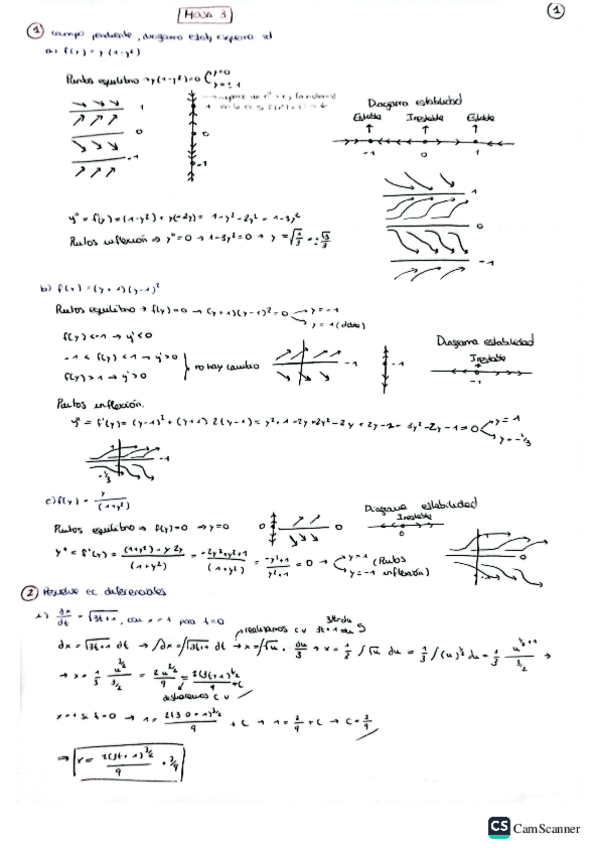 HOJA 3
1
1 Campo pendiente, diagrama estab, esquema sol
a) f(y) = y(1-y²)
Puntos equilibrio → y(1-y²)=0 y=0 y=±1
1
0
-1
1
0
-1
Diagrama estabilidad
Estable Inestable Estable
-1 0 1
1
0
-1
y'' = f'(y) = (1-y²) + y(-2y) = 1-y²-2y² = 1-3y²
Puntos inflexión ⇒ y''=0 → 1-3y²=0 → y = √1/3 = ±√3/3
b) f(y) = (y+1)(y-1)²
Puntos equilibrio → f(y)=0 → (y+1)(y-1)²=0 y=-1 y=1 (doble)
f(y) < -1 → y'<0
-1 < f(y) < 1 → y'>0
f(y) > 1 → y'>0
no hay cambio
-1
-1
Diagrama estabilidad
Inestable
-1
Puntos inflexión.
y'' = f'(y) = (y-1)² + (y+1) 2(y-1) = y²+1-2y+2y²-2y+2y-2 = 3y²-2y-1=0 y=1 y=-1/3
-1/3
-1
c) f(y) = y/(1+y²)
Puntos equilibrio ⇒ f(y)=0 ⇒ y=0
0
0
Diagrama estabilidad
Inestable
0
y'' = f'(y) = (1+y²) - y 2y / (1+y²) = -2y²+y²+1 / (1+y²) = -y²+1 / y²+1 = 0 → y=1 y=-1 (Puntos inflexión)
1
0
-1
2 Resuelve ec diferenciales
dx/dt = √3t+1, con x=1 para t=0
realizamos c v 3t+1=u
3dt=du
dx = √3t+1 dt → ∫dx = ∫√3t+1 dt → x = ∫√u · du/3 → x = 1/3 ∫√u du = 1/3 ∫(u)^1/2 du = 1/3 u^1/2+1 / 3/2 →
→ x = 1/3 u^3/2 / 3/2 = 2u^3/2 / 9 = 2(3t+1)^3/2 / 9 + C
deshacemos c v
x=1 si t=0 → 1 = 2(3·0+1)^3/2 / 9 + C → 1 = 2/9 + C → C = 7/9
⇒ x = 2(3t+1)^3/2 / 9 + 7/9
CS CamScanner